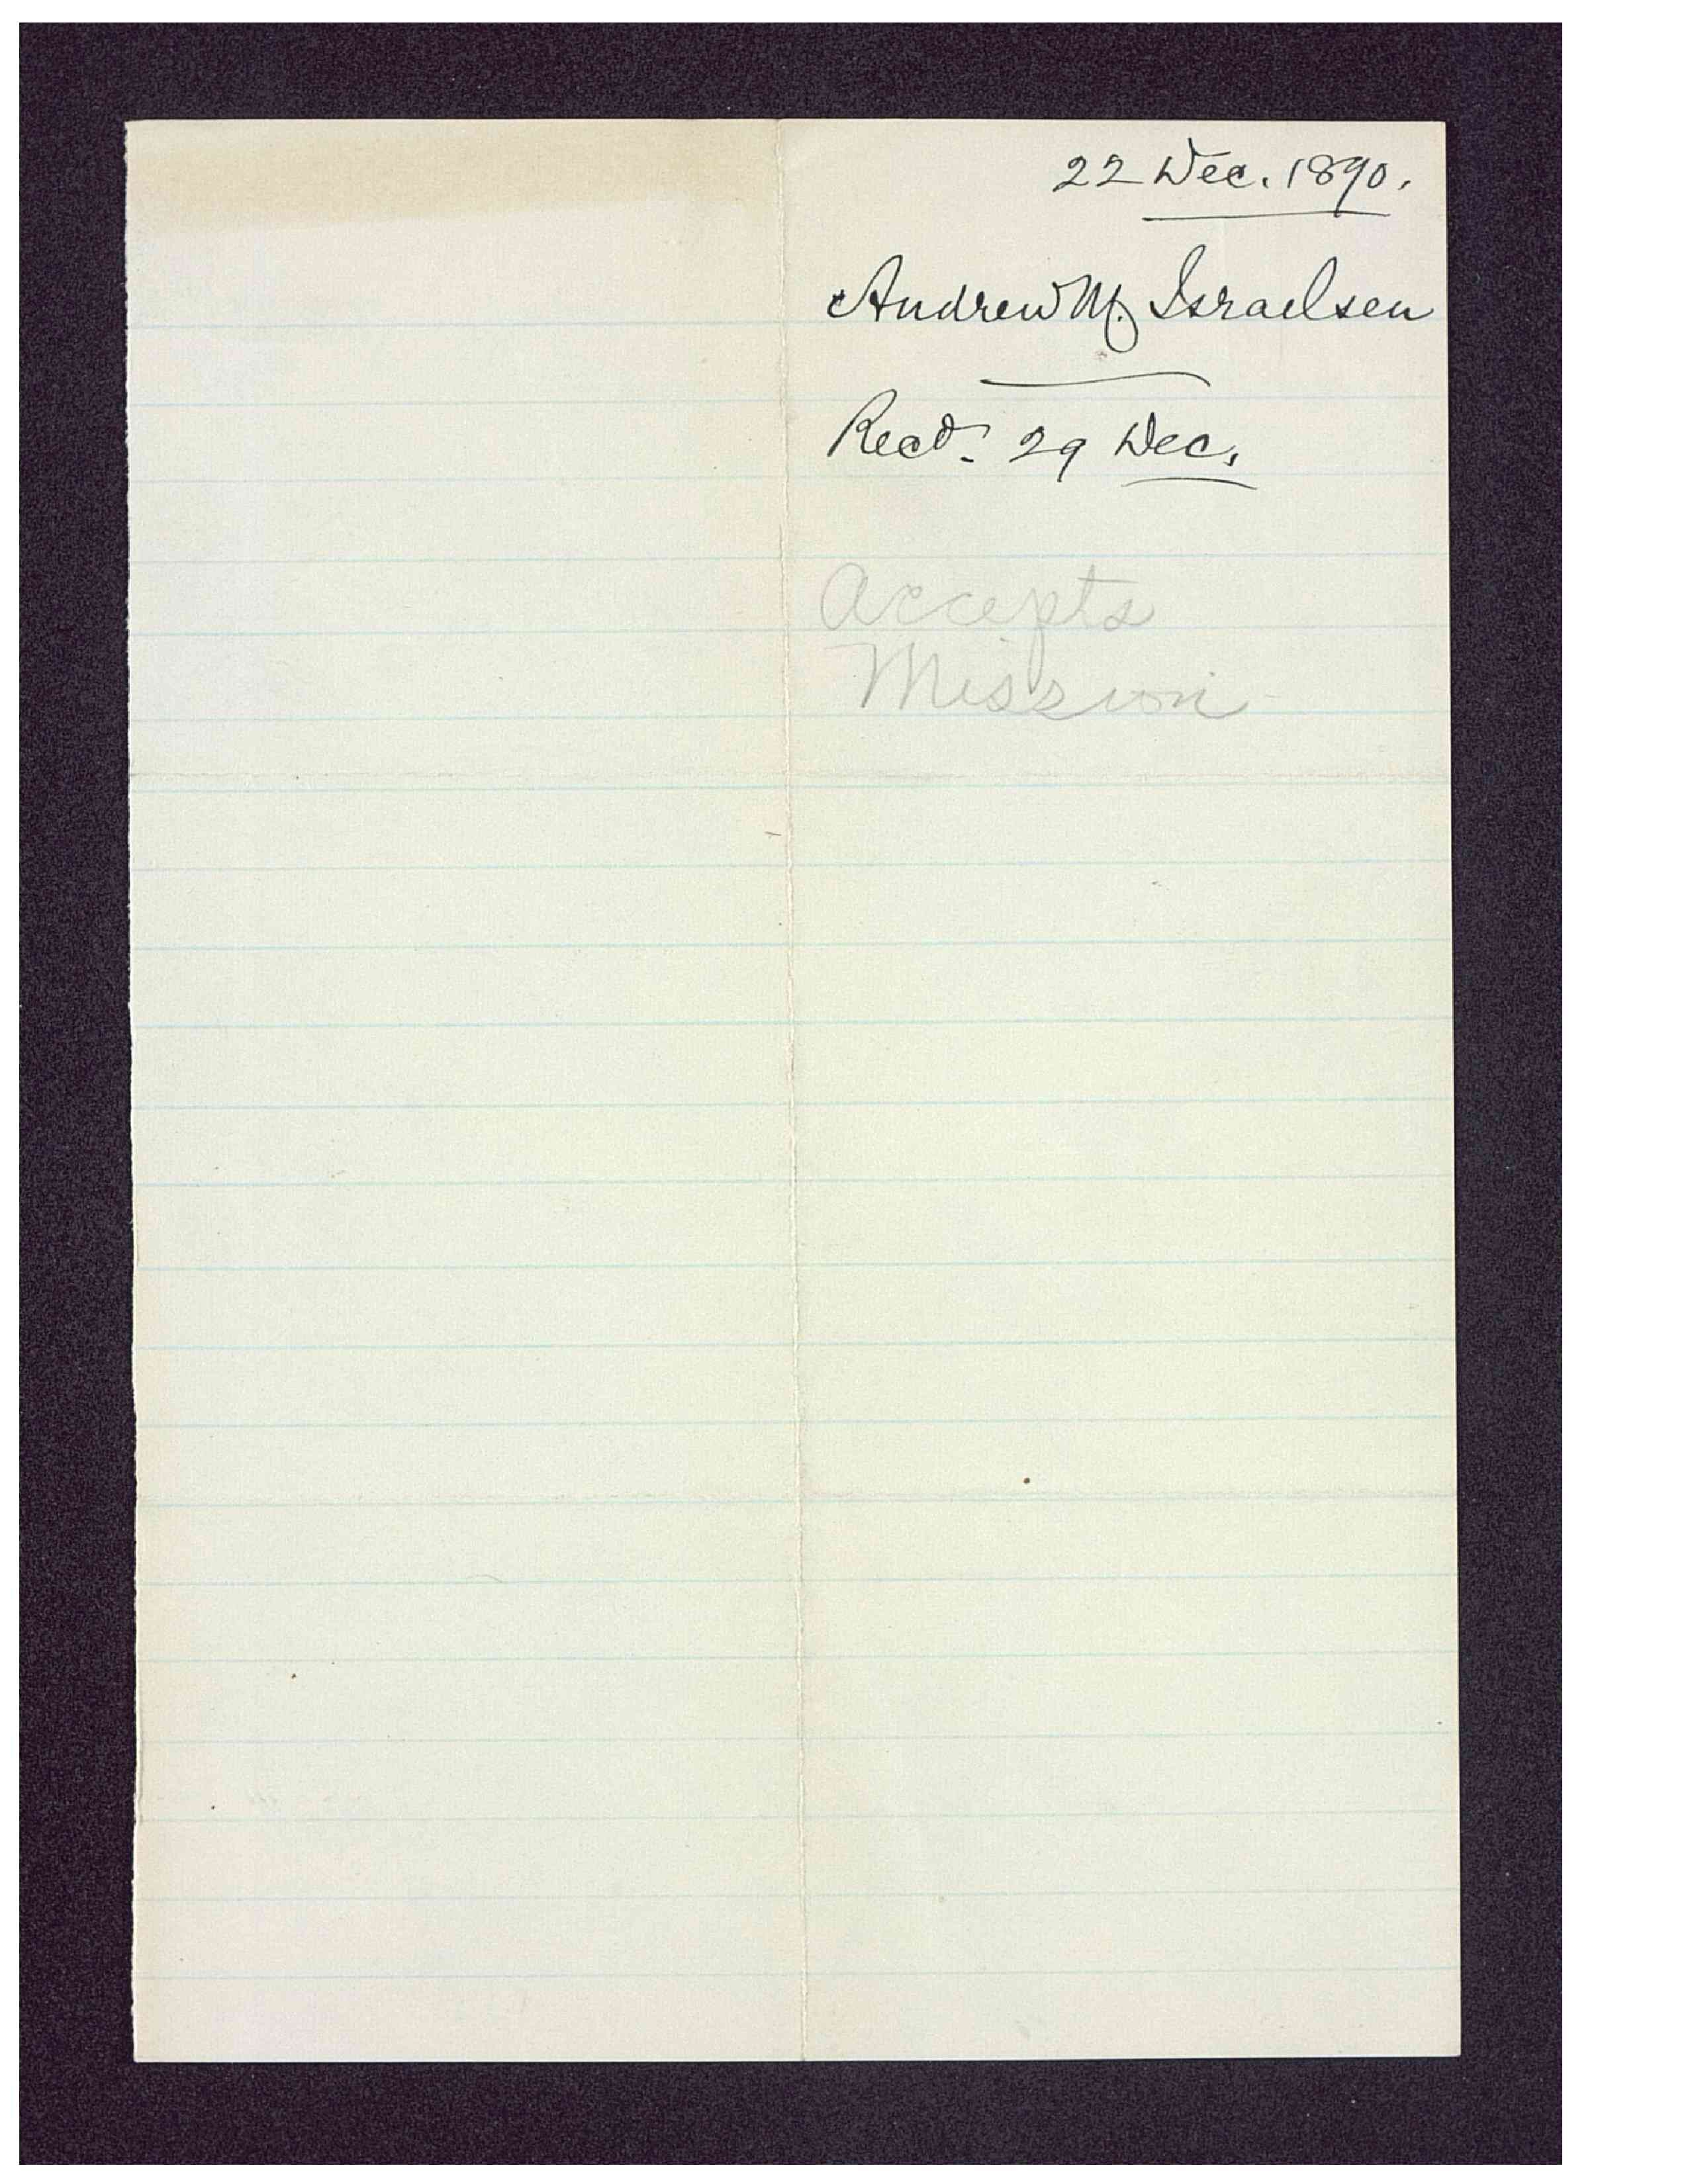 22 Dec. 1890.
Andrew M. Israelsen
Recd. 29 Dec.
Accepts
Mission